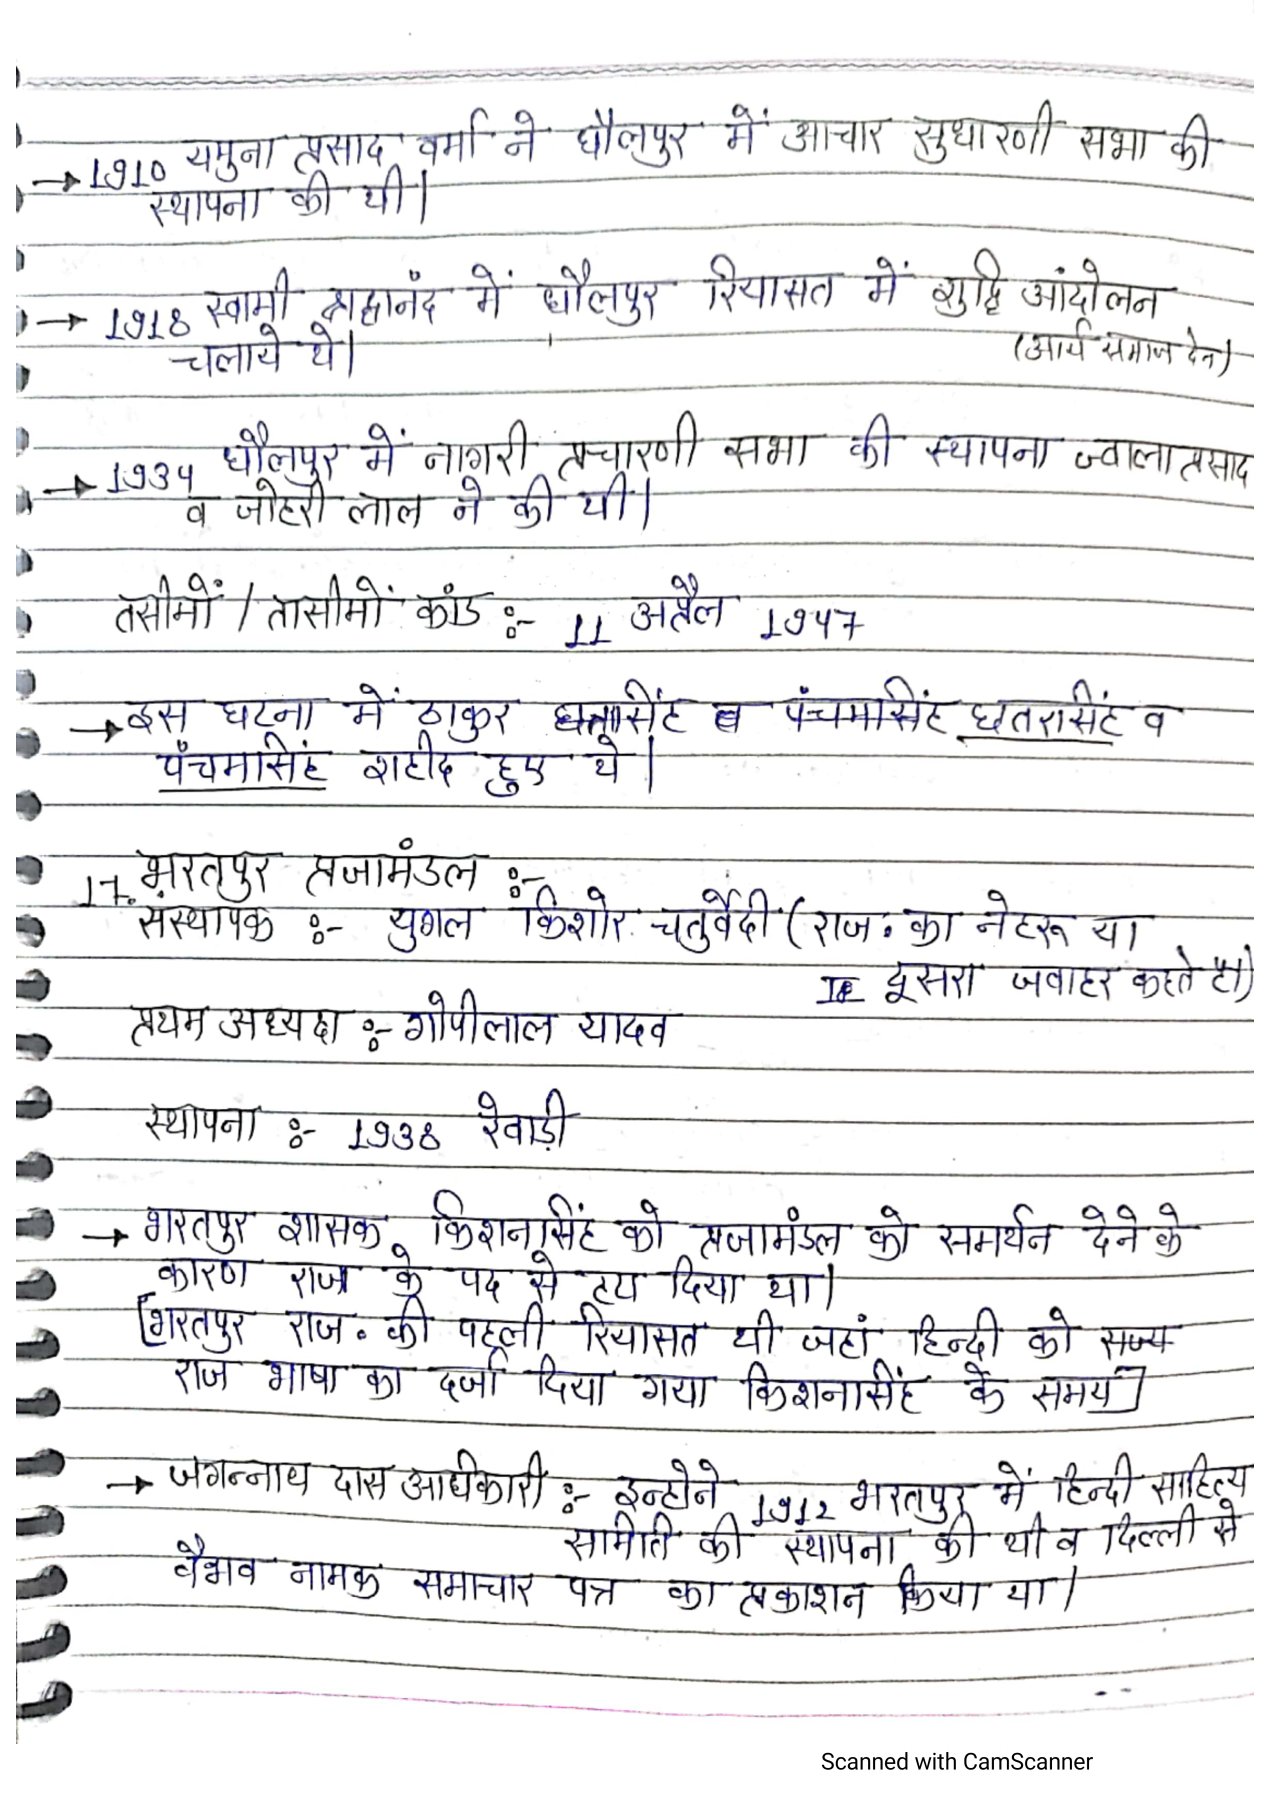 → 1910 यमुना प्रसाद वर्मा ने धौलपुर में आचार सुधारणी सभा की
स्थापना की थी।
→ 1918 स्वामी श्रद्धानंद में धौलपुर रियासत में शुद्धि आंदोलन
चलाये थे। (आर्य समाज देन)
→ 1934 धौलपुर में नागरी प्रचारणी सभा की स्थापना ज्वाला प्रसाद
व जोहरी लाल ने की थी।
तसीमों / तासीमों कांड :- 11 अप्रैल 1947
→ इस घटना में ठाकुर व पंचमसिंह छतरसिंह व
पंचमसिंह शहीद हुए थे।
17. भरतपुर प्रजामंडल :-
संस्थापक :- युगल किशोर चतुर्वेदी (राज. का नेहरू या
दूसरा जवाहर कहते है।)
प्रथम अध्यक्ष :- गोपीलाल यादव
स्थापना :- 1938 रेवाड़ी
→ भरतपुर शासक किशनसिंह को प्रजामंडल को समर्थन देने के
कारण राजा के पद से हटा दिया था।
[भरतपुर राज. की पहली रियासत थी जहां हिन्दी को
राज भाषा का दर्जा दिया गया किशनसिंह के समय]
→ जगन्नाथ दास अधिकारी :- इन्होने 1912 भरतपुर में हिन्दी साहित्य
समिति की स्थापना की थी व दिल्ली से
वैभव नामक समाचार पत्र का प्रकाशन किया था।
Scanned with CamScanner